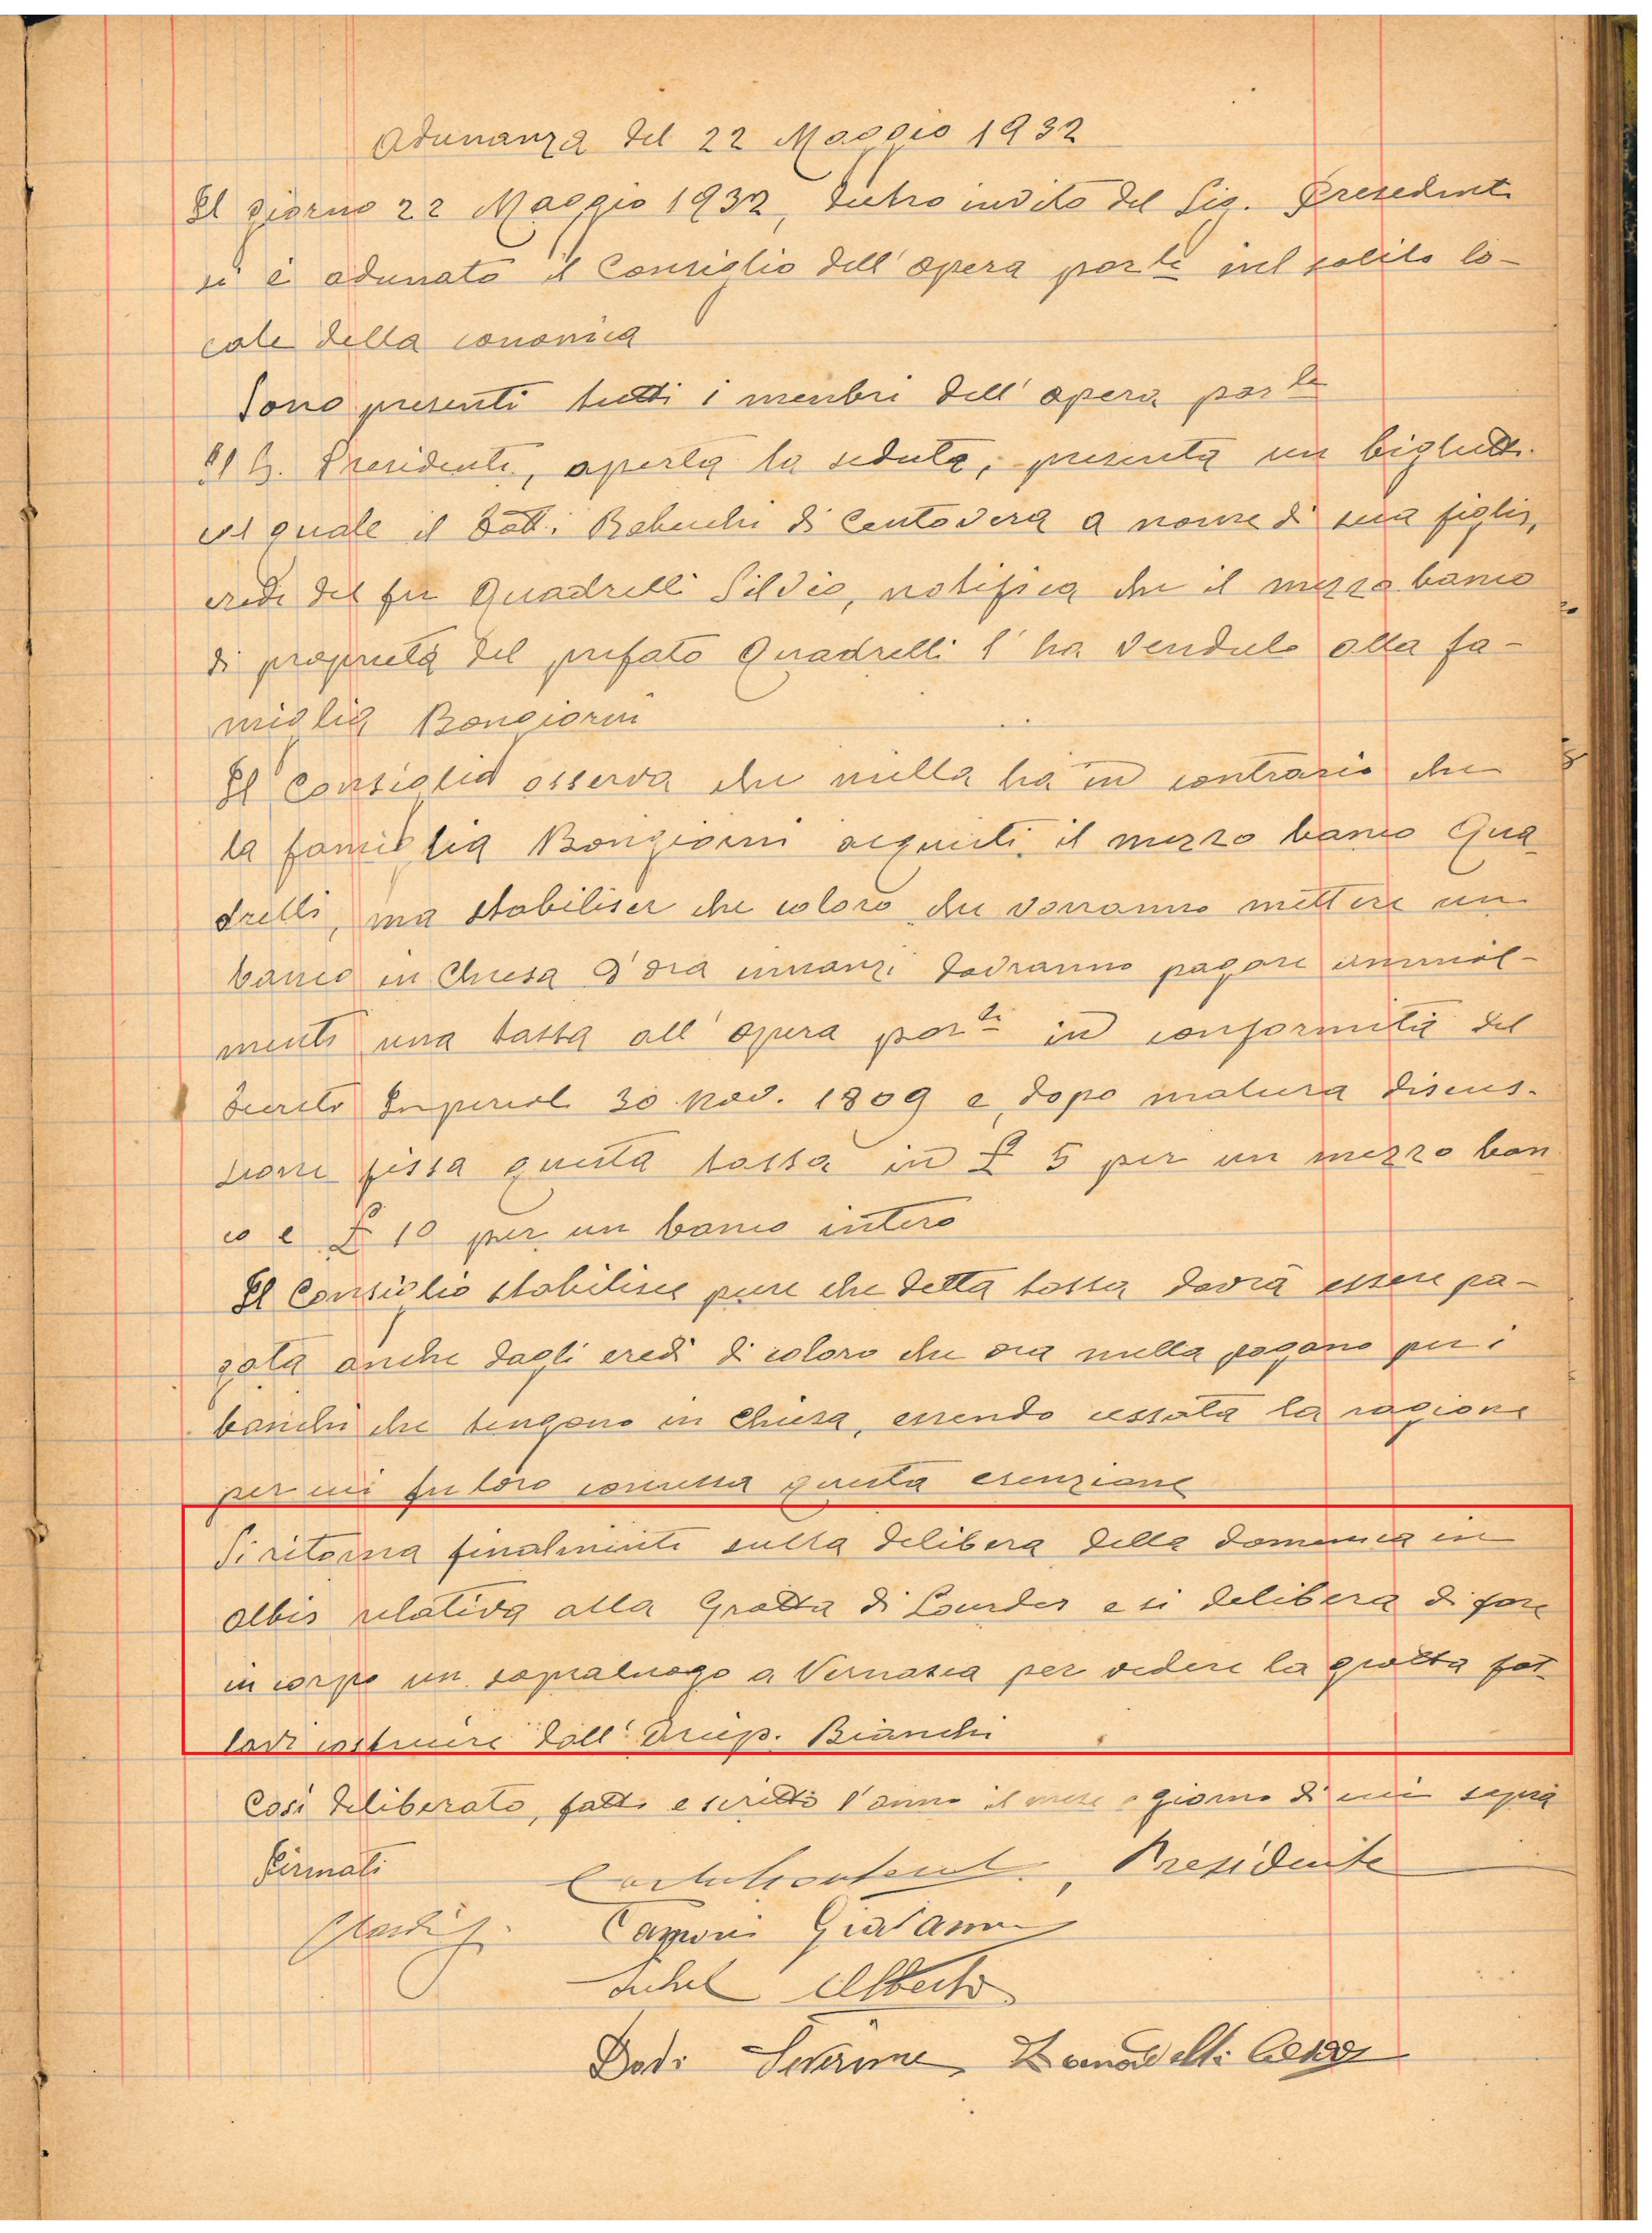 Adunanza del 22 Maggio 1932
Il giorno 22 Maggio 1932, dietro invito del Sig. Presidente
si è adunato il Consiglio dell'opera par.le nel solito lo-
cale della canonica
Sono presenti tutti i membri dell'opera par.le
Il S. Presidente, aperta la seduta, presenta un biglietto
col quale il Dott. di Centovera a nome di sua figlia,
erede del fu Quadrelli Silvio, notifica che il mezzo banco
di proprietà del prefato Quadrelli l'ha venduto alla fa-
miglia Bongiorni
Il Consiglio osserva che nulla ha in contrario che
la famiglia Bongiorni acquisti il mezzo banco Qua
drelli, ma stabilisce che coloro che vorranno mettere un
banco in Chiesa d'ora innanzi dovranno pagare annual-
mente una tassa all'opera par.le in conformità del
Decreto Imperiale 30 Nov. 1809 e dopo matura discus-
sione fissa questa tassa in £ 5 per un mezzo ban
co e £ 10 per un banco intero
Il Consiglio stabilisce pure che detta tassa dovrà essere pa-
gata anche dagli eredi di coloro che ora nulla pagano per i
banchi che tengono in Chiesa, essendo cessata la ragione
per cui fu loro concessa questa esenzione
Si ritorna finalmente sulla delibera della domenica in
albis relativa alla Grotta di Lourdes e si delibera di fare
in corpo un sopraluogo a Vernasca per vedere la grotta fat
tavi costruire dall'Arcip. Bianchi
Così deliberato, fatto e scritto l'anno il mese e giorno di cui sopra
Firmati
Presidente
Giovanni
Alberto
Dodi Severino Zanardelli Cesare